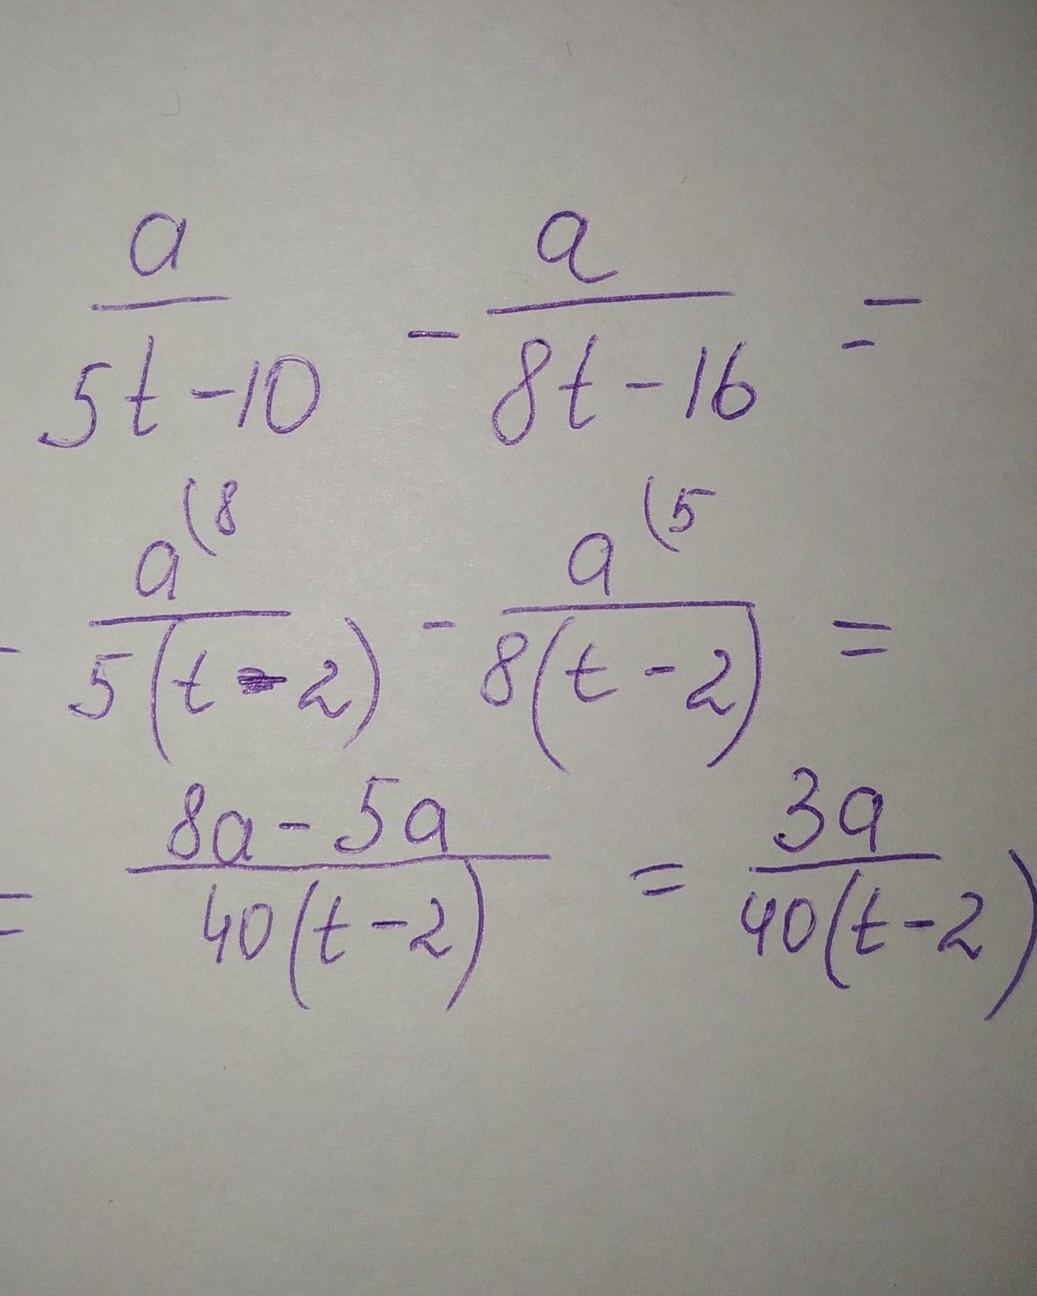 a/(5t-10) - a/(8t-16) =
= a^(8/5(t-2) - a^(5/8(t-2) =
= (8a-5a)/40(t-2) = 3a/40(t-2)